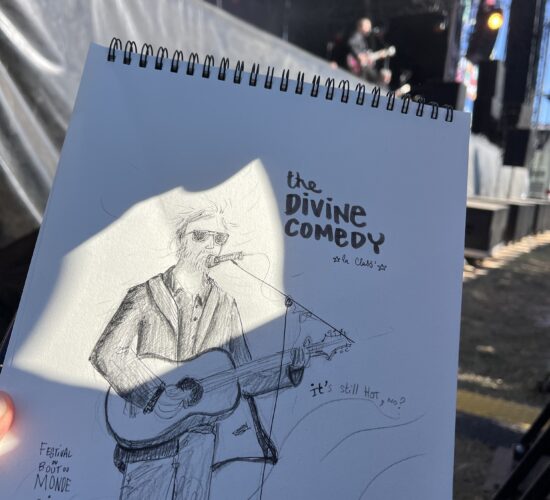 the
DiViNE
COMEDY
☆In Class'☆
it's still Hot, no?
FESTiVAL
DU
BOUT DU
MONDE